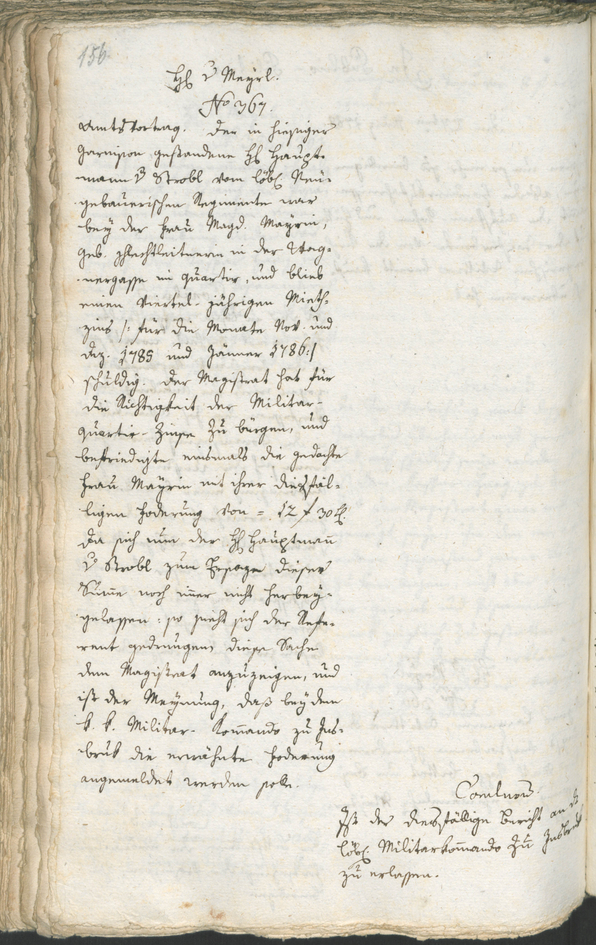 156.
H. v Mayrl.
No 367.
Amtsvortrag. Der in hiesiger
Garnison gestandene H. Haupt-
mann v Strobl vom löbl. Neu-
gebauerischen Regimente war
bey der Frau Magd. Mayrin,
geb. in der Wag-
nergasse im Quartir, und blieb
einen Viertel-jährigen Mieth-
zins /: für die Monate Nov. und
Dez. 1785 und Jänner 1786 :/
schuldig. Der Magistrat hat für
die Richtigkeit der Militar-
quartir-Zinse zu bürgen, und
befriedigte einsmals die gedachte
Frau Mayrin mit ihrer diesfäl-
ligen Foderung von = 12 f 30 k
Da sich nun der H. Hauptmann
v Strobl zum Ersaze dieser
Summe noch immer nicht herbey-
gelassen: so sieht sich der Refe-
rent gedrungen, diese Sache
dem Magistrat anzuzeigen, und
ist der Meynung, daß bey dem
k. k. Militar-Kommando zu Ins-
bruk die erwähnte Foderung
angemeldet werden solle.
Conclusum
Ist der diesfällige Bericht an das
löbl. Militarkommando zu Insbruk
zu erlassen.